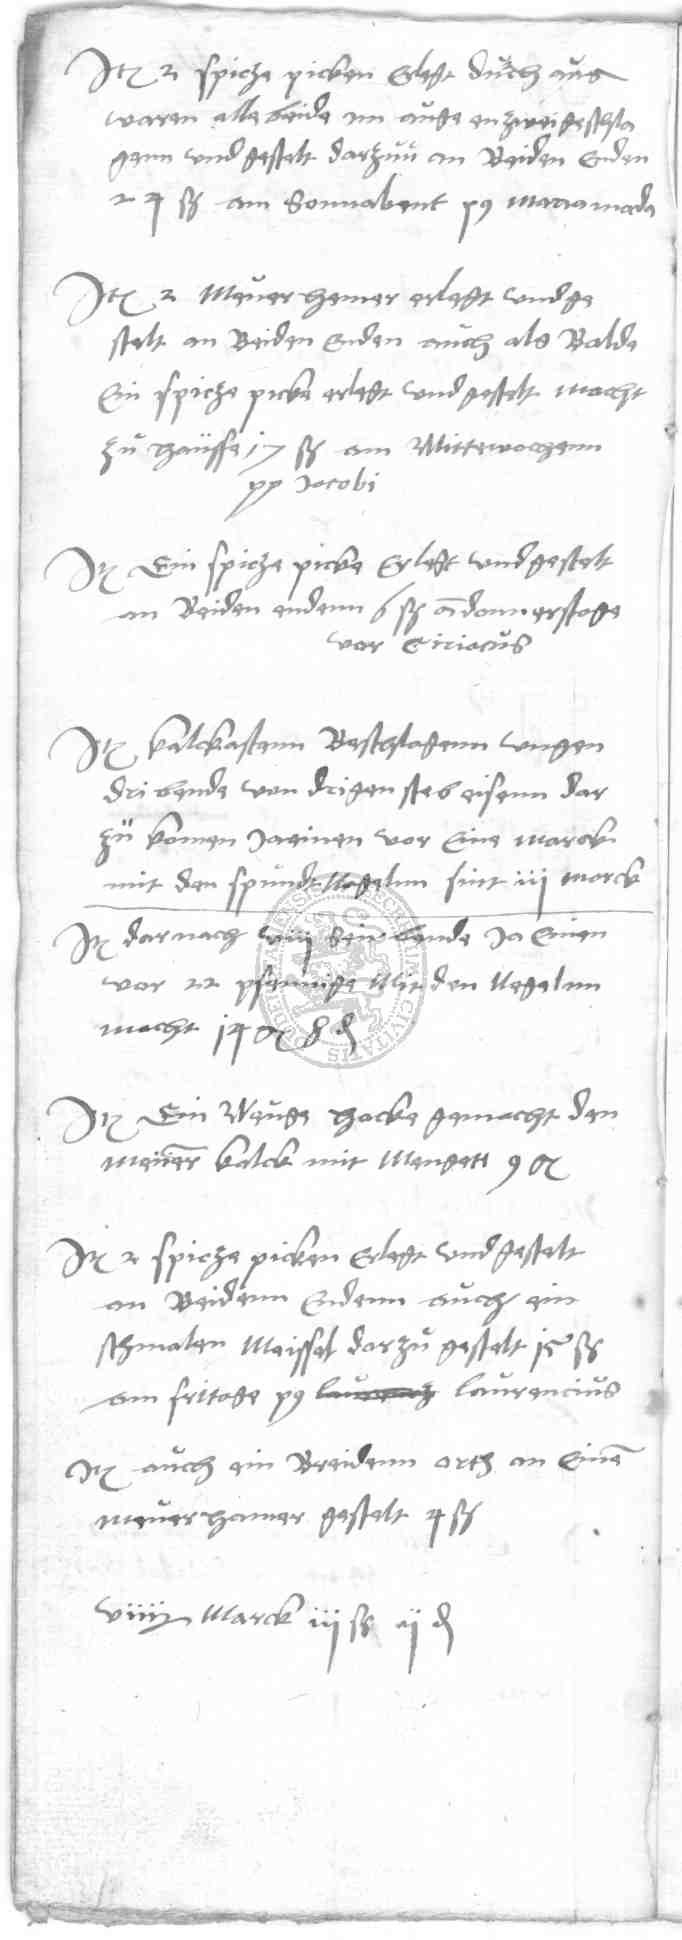 Itꝫ 2 spicze picken Erlegt durch aus
waren alle beide im auge enzweigeschla
genn und gestelt darzuu an Beiden Enden
24 ss am Sonnabent p9 Maria mada
Itꝫ 2 Meuerhemer erlegt und ge
stelt an Beiden Enden auch als Balde
Ein spicze picke erlegt und gestelt macht
zu hauffe 17 ss am Mittewochenn
pp Jacobi
Itꝫ Ein spicze picke Erlegt und gestelt
an Beiden endenn 6 ss a donnerstage
vor Ciriacus
Itꝫ kalckastenn Beschlagenn ungen
dri bende von drigen steb eisenn dar
zu komen Ja einen vor Eine marck
mit den spundt Negelnn sint iij marck
Itꝫ darnach viij bende Ja Einen
vor 22 pfennige Mit den Negelnn
macht 14 gꝫ 8 d
Itꝫ Ein hacke gemacht den
meurer kalck mit Mengett 9 gꝫ
Itꝫ 2 spicze picken Erlegt und gestelt
an Beidenn Endenn auch ein
schmalen Meissel darzu gestelt ss
am fritage p9 laurencius
Itꝫ auch ein Breidenn orth an Eine
meuerhamer gestelt 4 ss
viiij Marck iij ss ij d
CIVITATIS